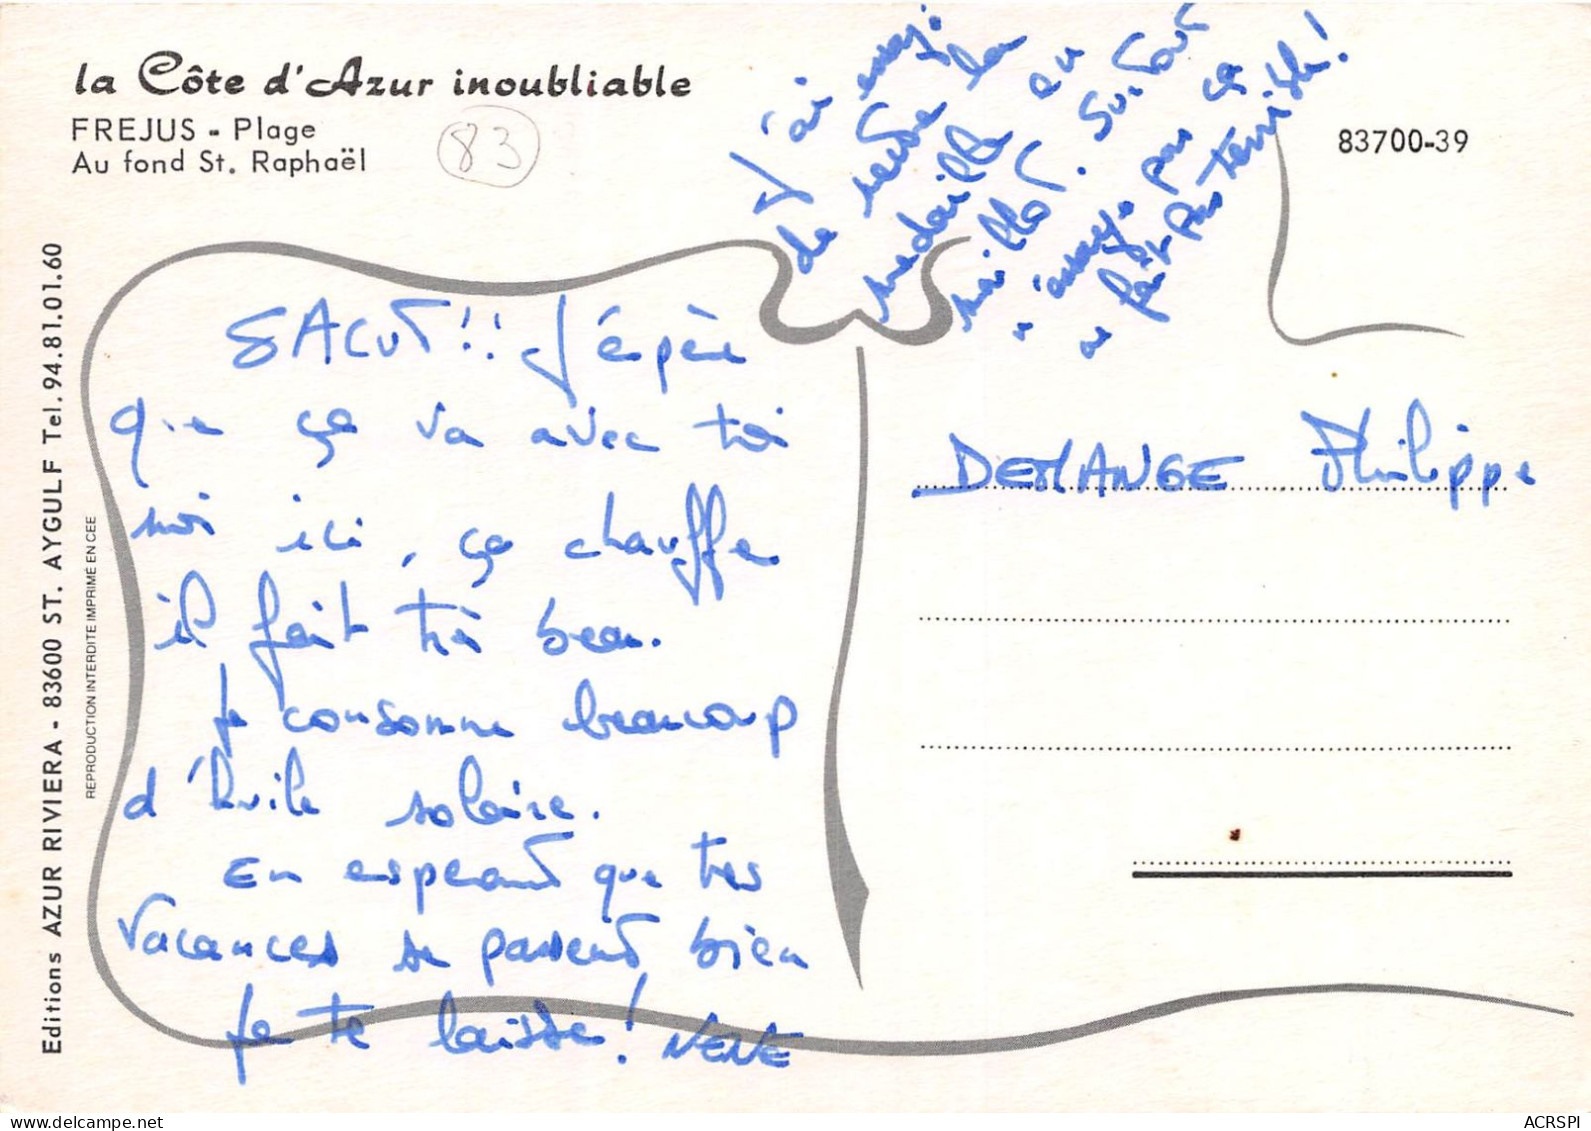 la Côte d'Azur inoubliable
FREJUS - Plage
Au fond St. Raphaël
83
83700-39
J'ai essayé
de rendre la
médaille au
maillot. Surtout
n'essaye pas ça
ne fait pas terrible!
SALUT!! J'éspère
que ça va avec toi
moi ici, ça chauffe
il fait très beau.
Je consomme beaucoup
d'huile solaire.
En espérant que tes
vacances se passent bien
Je te laisse! NENE
DEMANGE Philippe
Editions AZUR RIVIERA - 83600 ST. AYGULF Tel. 94.81.01.60
REPRODUCTION INTERDITE IMPRIMÉ EN CEE
ACRSPI